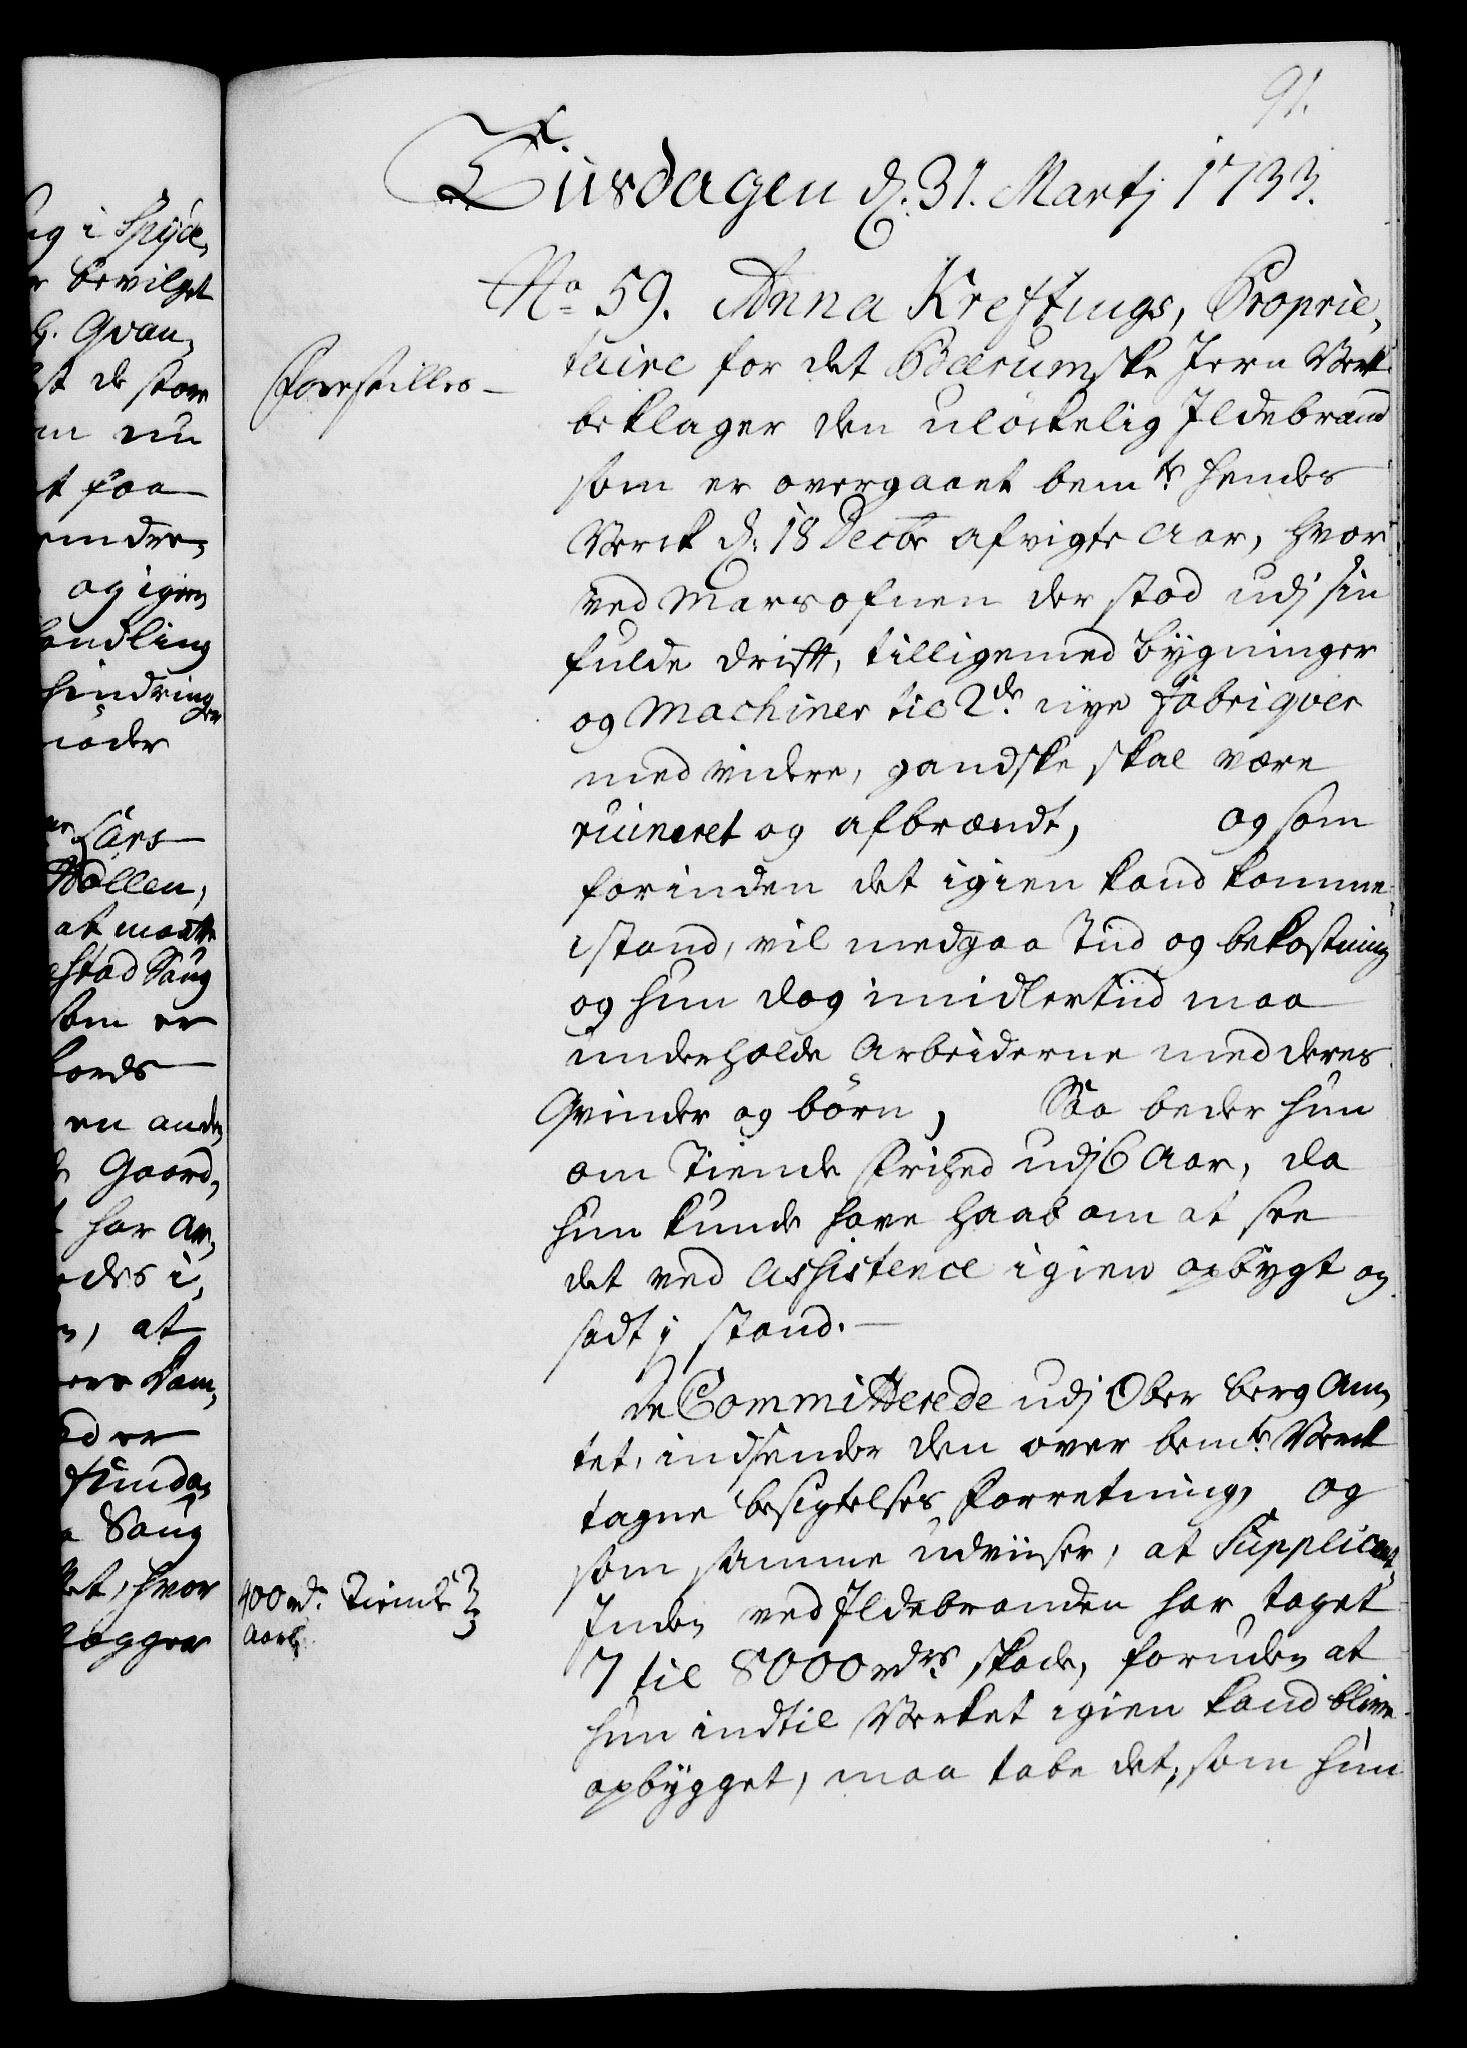 91.
Tiisdagen d. 31. Martj 1733.
No 59. Anna Kreftings, Proprie,
taire for det Bærumske Jern Verk
Forestilles
beklager den uløckelig Ildebrand
som er overgaaet bemte hendes
Verck d: 18 Decbr afvigte Aar, hvor
ved Marsofnen der stod udj sin
fulde drift, tilligemed bygninger
og Machiner til 2de nye Fabriqver
med videre, gandske skal være
ruineret og afbrændt, og som
forinden det igien kand komme
i stand, vil medgaa Tiid og bekostning
og hun dog imidlertiid maa
underholde Arbeiderne med deres
Qvinder og børn, Saa beder hun
om Tiende Frihed udj 6 Aar, da
hun kunde have Haab om at see
det ved Assistence igien opbygt og
sadt j stand.
De Committerede udj Ober Berg Am,
tet, indsender den over bemte Verck
tagne besigtelses Forretning, og
som samme udviiser, at Supplicant,
Inden ved Ildebranden har taget
400 rd. Tiende
aarl.
7 til 8000 rdrs skade, foruden at
hun indtil Verket igien kand blive
opbygget, maa tabe det, som hun
ug i Spyde,
er bevilget
Qvan,
st de store
em nu
t paa
endre,
og igien
handling
hindring
er
møder
Lars
Mollen,
at maatte
stad Saug
som er
fords
en anden
Gaard,
har an,
edes i,
n, at
ers Kam,
ed er
funda,
Saug
ket, hvor
legger